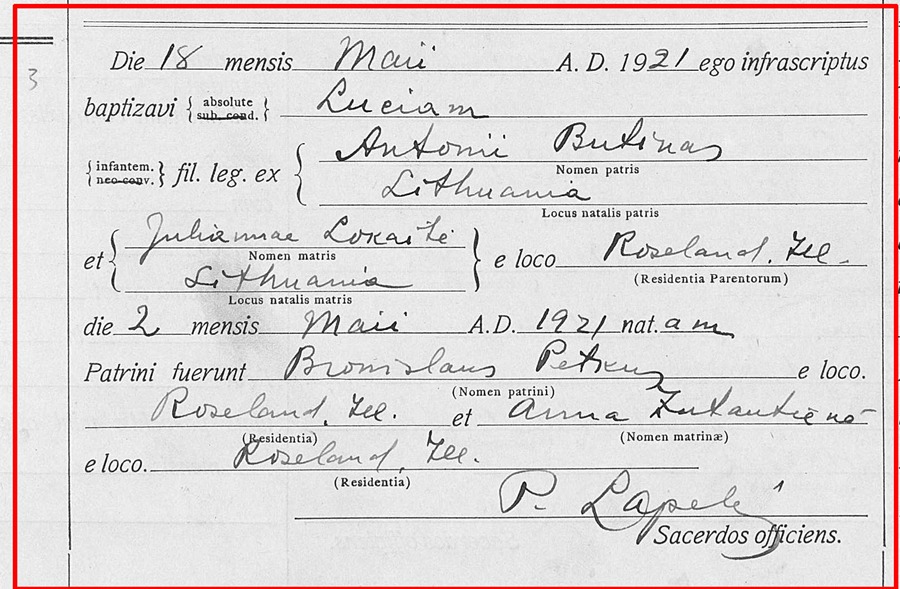 3
Die 18 mensis Maii A. D. 1921 ego infrascriptus
baptizavi { absolute sub. cond. } Luciam
{ infantem. neo-conv. } fil. leg. ex { Antonii Butinas
Nomen patris
Lithuania
Locus natalis patris
et { Juliannae Lokaitė } e loco Roseland, Ill.
Nomen matris (Residentia Parentorum)
Lithuania
Locus natalis matris
die 2 mensis Maii A.D. 1921 nat.am
Patrini fuerunt Bronislaus Petkus e loco.
(Nomen patrini)
Roseland, Ill. et Anna
(Residentia) (Nomen matrinæ)
e loco. Roseland, Ill.
(Residentia)
P. Lapelis
Sacerdos officiens.